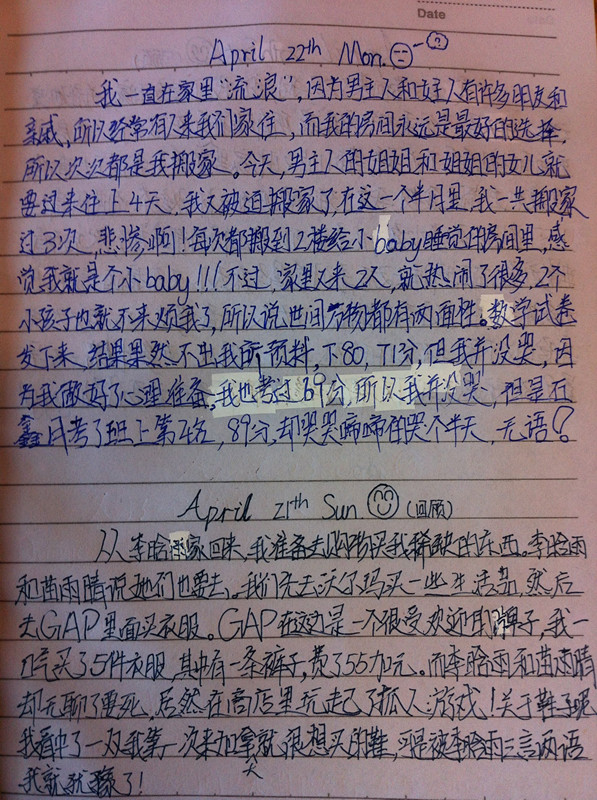 Date
April 22th Mon. ?
我一直在家里"流浪",因为男主人和女主人有许多朋友和
亲戚,所以经常有人来我们家住,而我的房间永远是最好的选择,
所以次次都是我搬家。今天,男主人的姐姐和姐姐的女儿就
要过来住上4天,我又被迫搬家了,在这一个半月里,我一共搬家
过3次,悲惨啊!每次都搬到2楼给小baby睡觉的房间里,感
觉我就是个小baby!!!不过,家里又来2人,就热闹了很多,2个
小孩子也就不来烦我了,所以说世间万物都有两面性。数学试卷
发下来,结果果然不出我所预料,下80,71分,但我并没哭,因
为我做好了心理准备,我也考过69分,所以我并没哭,但是石
鑫月考了班上第2名,89分,却哭哭啼啼的哭个半天,无语!
April 21th Sun (回顾)
从李晗雨家回来,我准备去购物买我稀缺的东西。李晗雨
和苗雨晴说她们也要去。我们先去沃尔玛买一些生活品,然后
去GAP里面买衣服。GAP在这边是一个很受欢迎的牌子,我一
口气买了5件衣服,其中有一条裤子,费了55加元。而李晗雨和苗雨晴
却无聊了要死,居然在商店里玩起了抓人游戏!关于鞋子呢
我看中了一双我第一次来加拿大就很想买的鞋,可是被李晗雨三言两语
我就犹豫了!